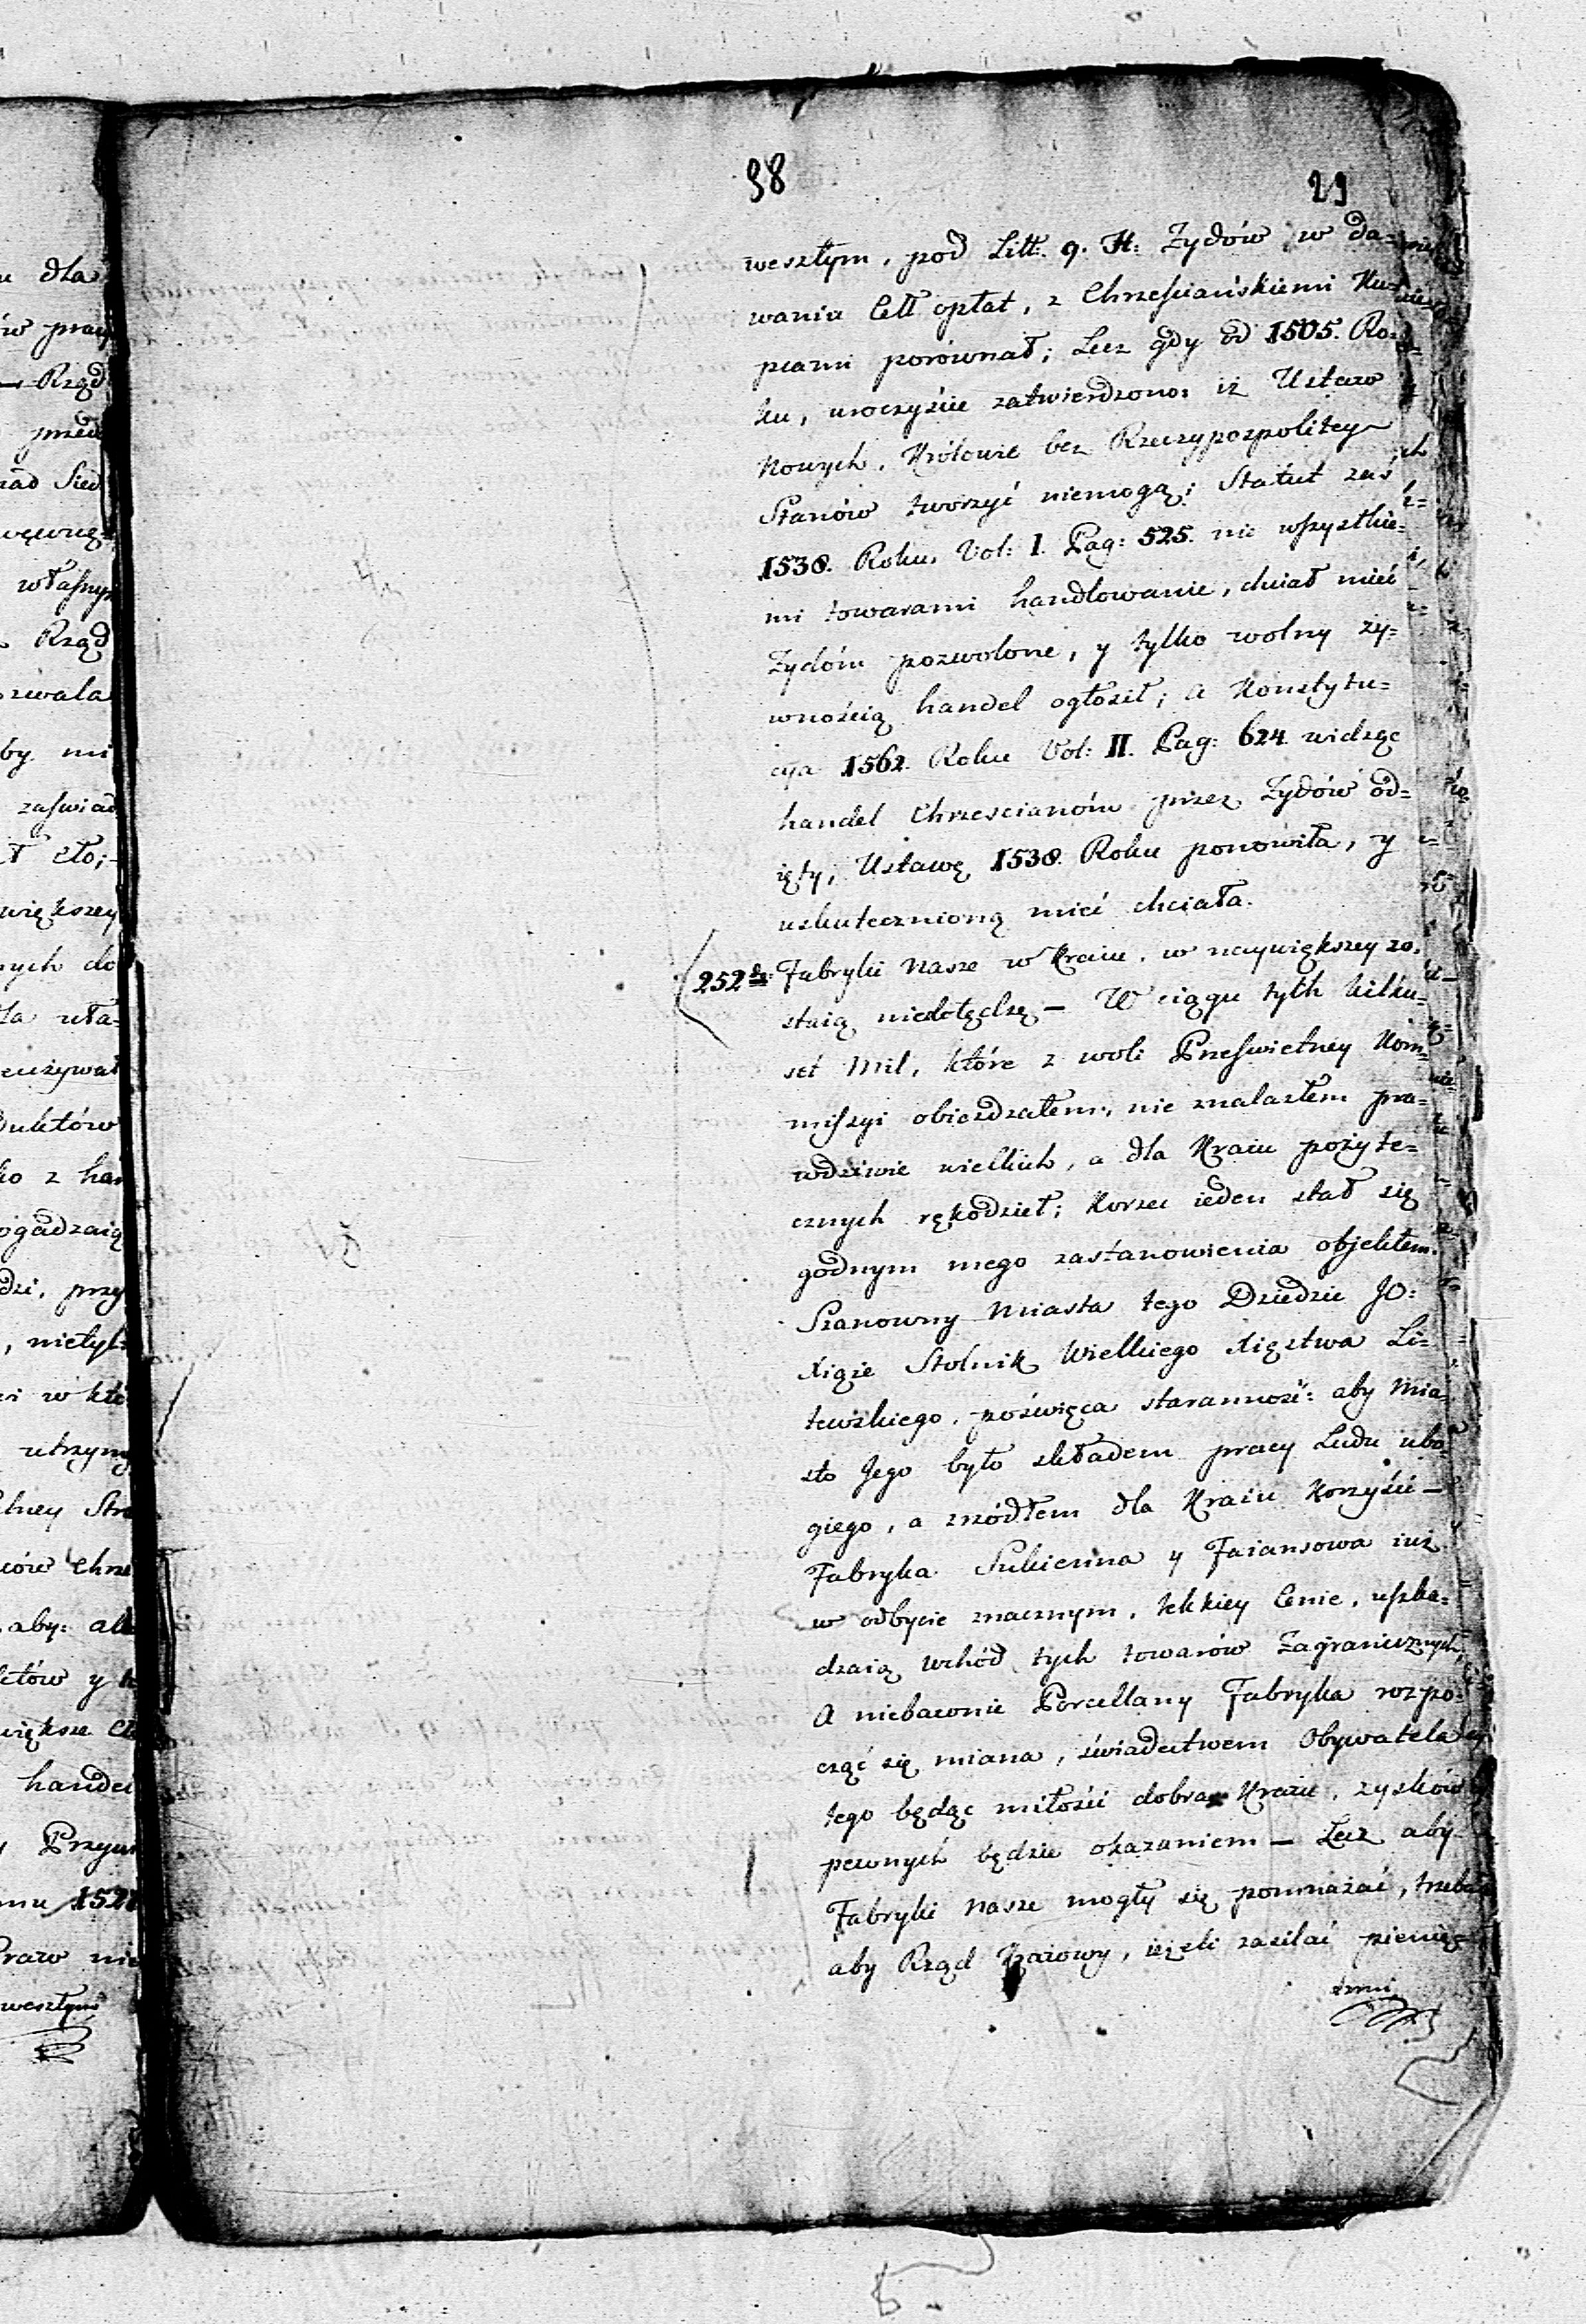 98
29
wesztym, pod Litt: q. H: Zydów w da=
waniu Cełł opłat, z Chrześciańskiemi Ku=
pcami porównał; Lecz gdy od 1505. Ro=
ku, uroczyście zatwierdzono: iż Ustaw
Nowych, Królowie bez Rzeczypospolitey
Stanów tworzyć niemogą; Statut zaś
1538. Roku, Vol: I. Pag: 525. nie wszystkie=
mi towarami handlowanie, chciał mieć
Zydóm pozwolone, y tylko wolny ży=
wnością handel ogłosił; a Konstytu=
cya 1562. Roku Vol: II. Pag: 624. widząc
handel Chrzescianóm przez Zydów od=
ięty, Ustawę 1538. Roku ponowiła, y
uskutecznioną mieć chciała.
252 Fabryki nasze w Kraiu, w naywiększey zo=
staią niedołędze — W ciągu tych kilku=
set Mil, które z woli Prześwietney Kom=
missyi obiezdzałem, nie znalazłem pra=
wdziwie wielkich, a dla Kraiu pożyte=
cznych rękodzieł; Korzec ieden stał się
godnym mego zastanowienia objektem.
Szanowny Miasta tego Dziedzic JO:
Xiąże Stolnik Wielkiego Xięztwa Li=
tewskiego, poświęca staranność: aby Mia=
sto Jego było składem pracy Ludu ubo=
giego, a zrzódłem dla Kraiu Korzyści —
Fabryka Sukienna y Faiansowa iuż
w odbycie znacznym, lekkiey Cenie, uszka=
dzaią wchód tych towarów Zagranicznych,
A niebawnie Porcellany Fabryka rozpo=
cząć się miana, świadectwem Obywatela
tego będąc miłości dobra Kraiu, zysków
pewnych będzie okazaniem — Lecz aby
Fabryki nasze mogły się pomnażać, trzeba
aby Rząd Kraiowy, ieżeli zasilać pienię=
dzmi
u dla
ów pra
— Rząd
przed
nad Sied
wewnę=
własny
Rząd
zwala
by mi
zaświad
ł cło;
większey
nych do
ła uła=
duktów
ko z ha
ogadzaią
dzi, przy
, nietyl=
i w któ
utrzym
tney Str
ców Chrze
aby: al
któw y
większe C
handel
y Przyw
mu 152
Praw nie
wesztym